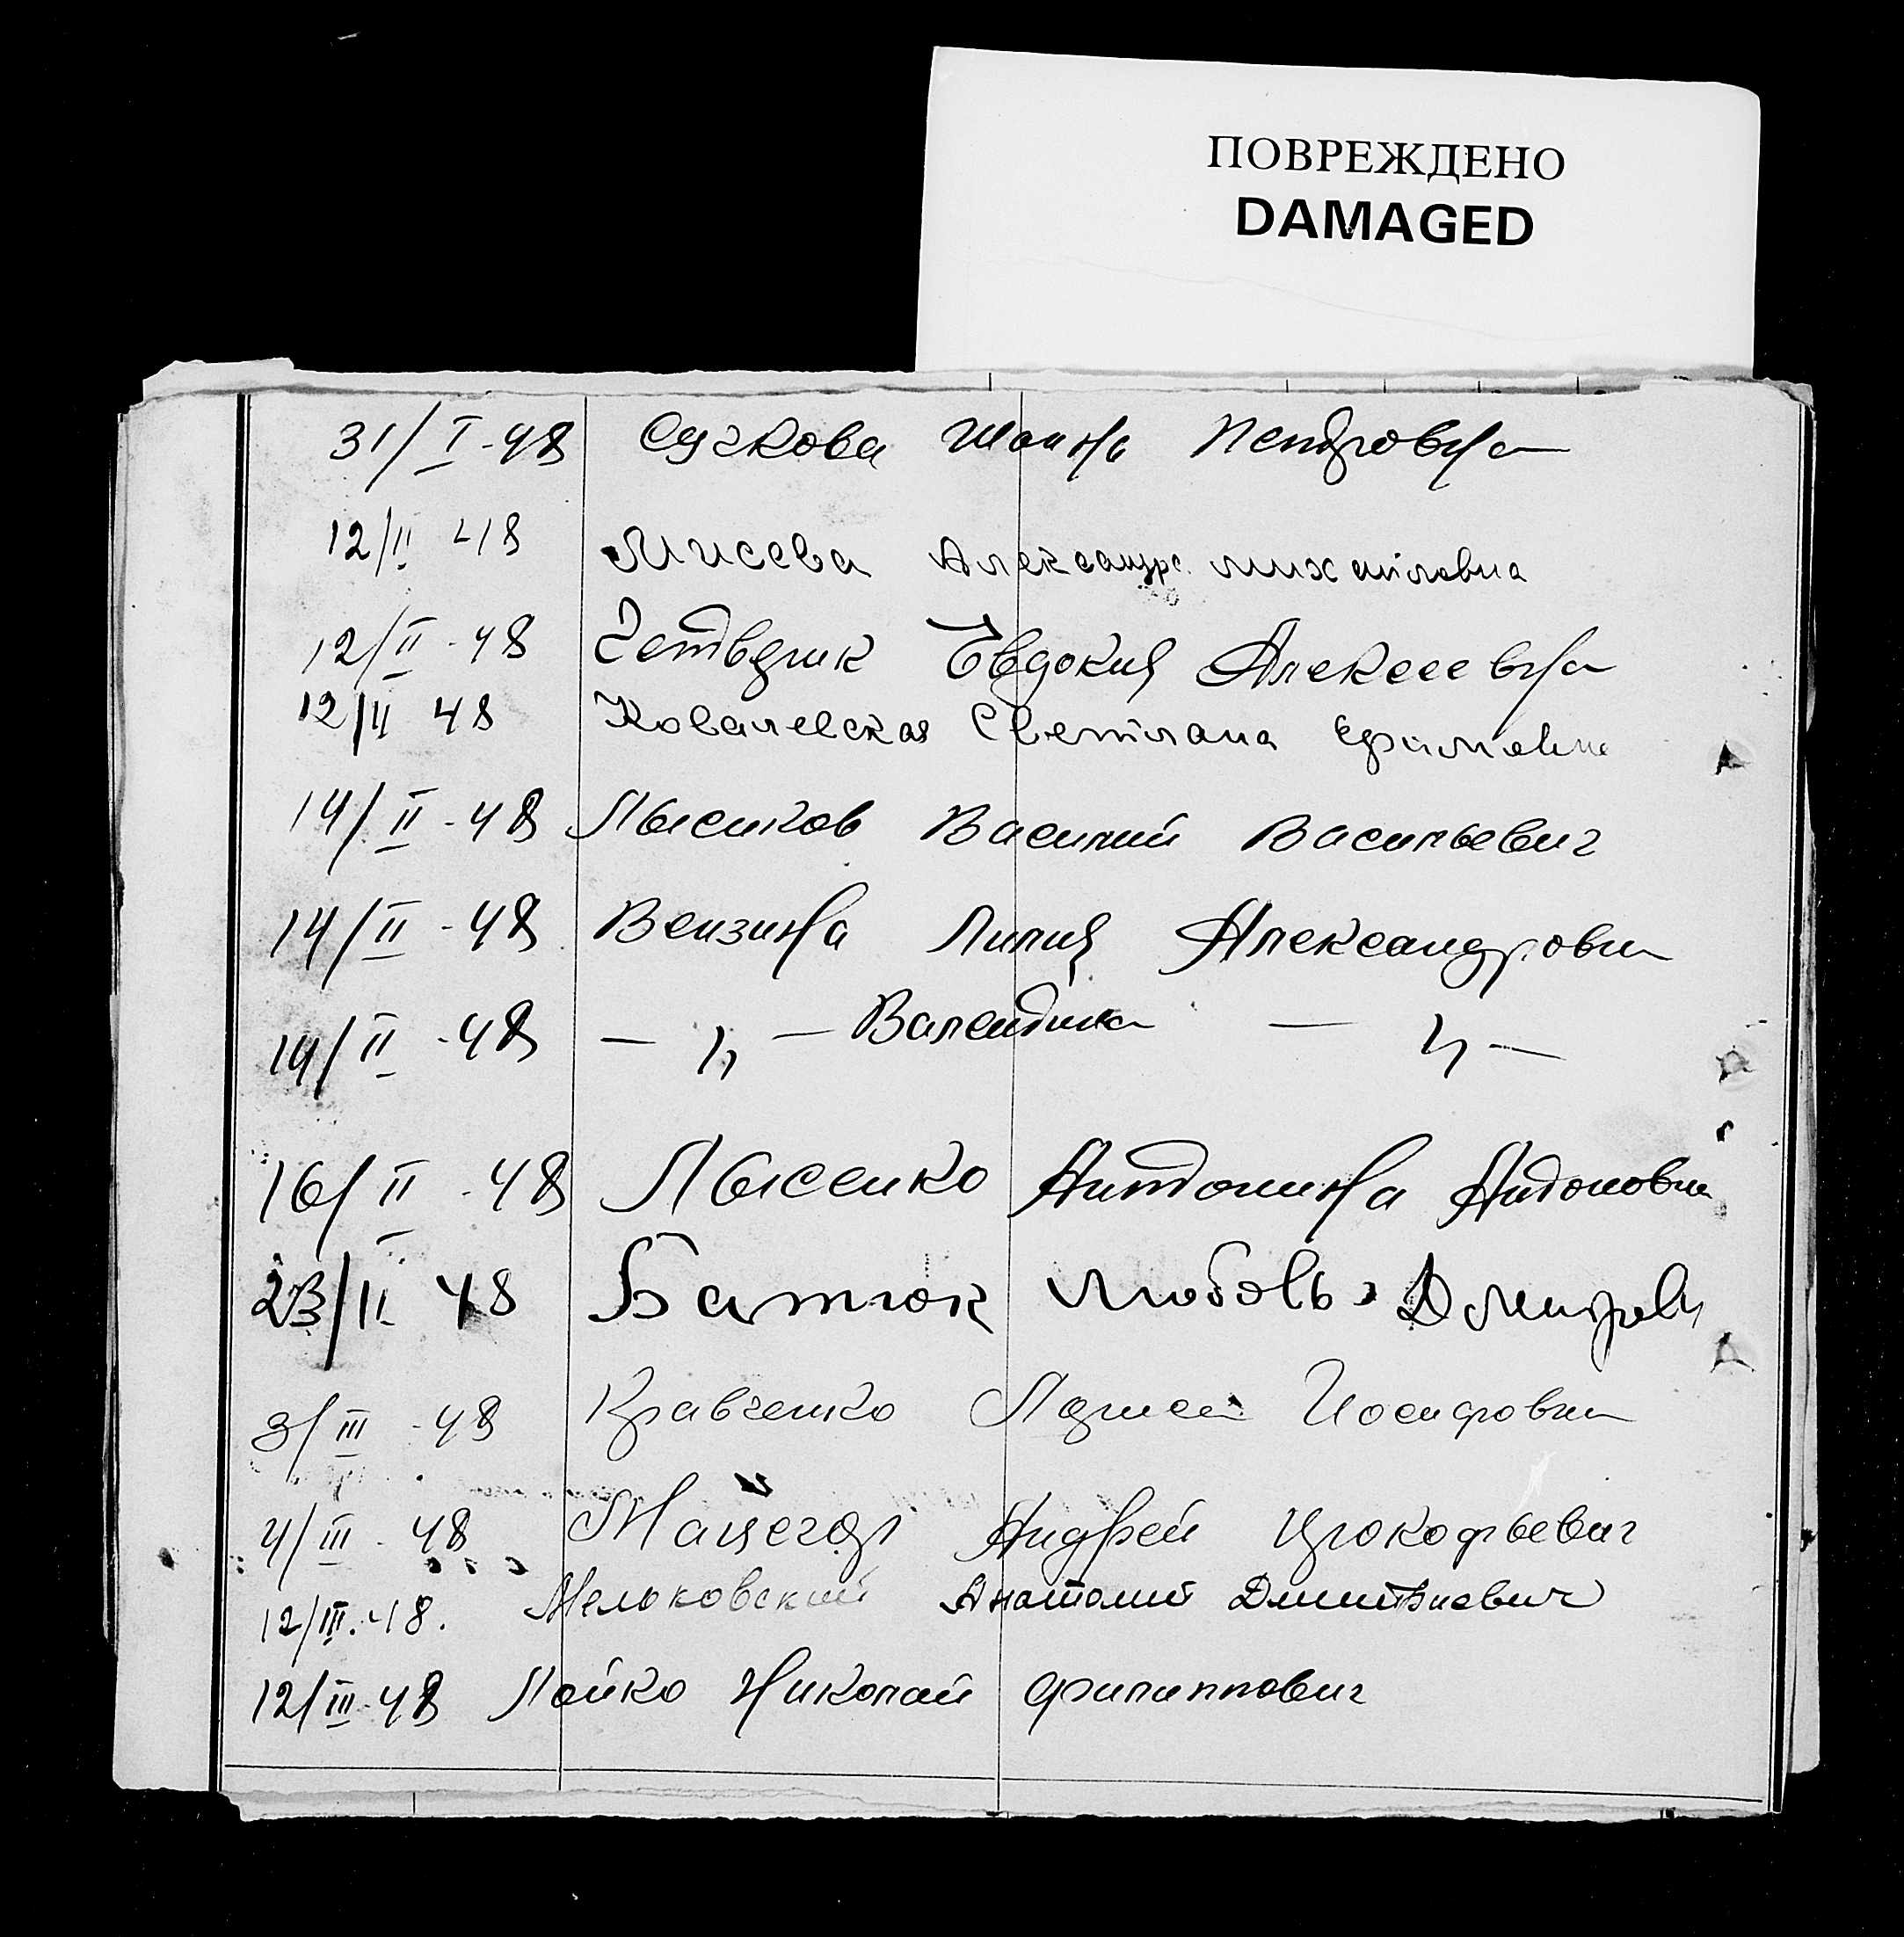 ПОВРЕЖДЕНО
DAMAGED
31/I-48 Сучкова Петровна
12/II 48 Мисева Александра михайловна
12/II-48 Евдокия Алексеевна
12/II 48 Ковалевская Светлана Ефимовна
14/II-48 Лысиков Василий Васильевич
14/II-48 Вензина Лилия Александровн
14/II-48 — „ — Валентина — „ —
16/II-48 Лысенко Антонина Антоновн
23/II 48 Батюк Любовь Дмитревн
3/III-48 Кравченко Лариса Иосифовн
4/III-48 Мацегор Андрей Прокофьевич
12/III.48. Мельковский Анатолий Дмитриевич
12/III-48 Лойко Николай Филиппович